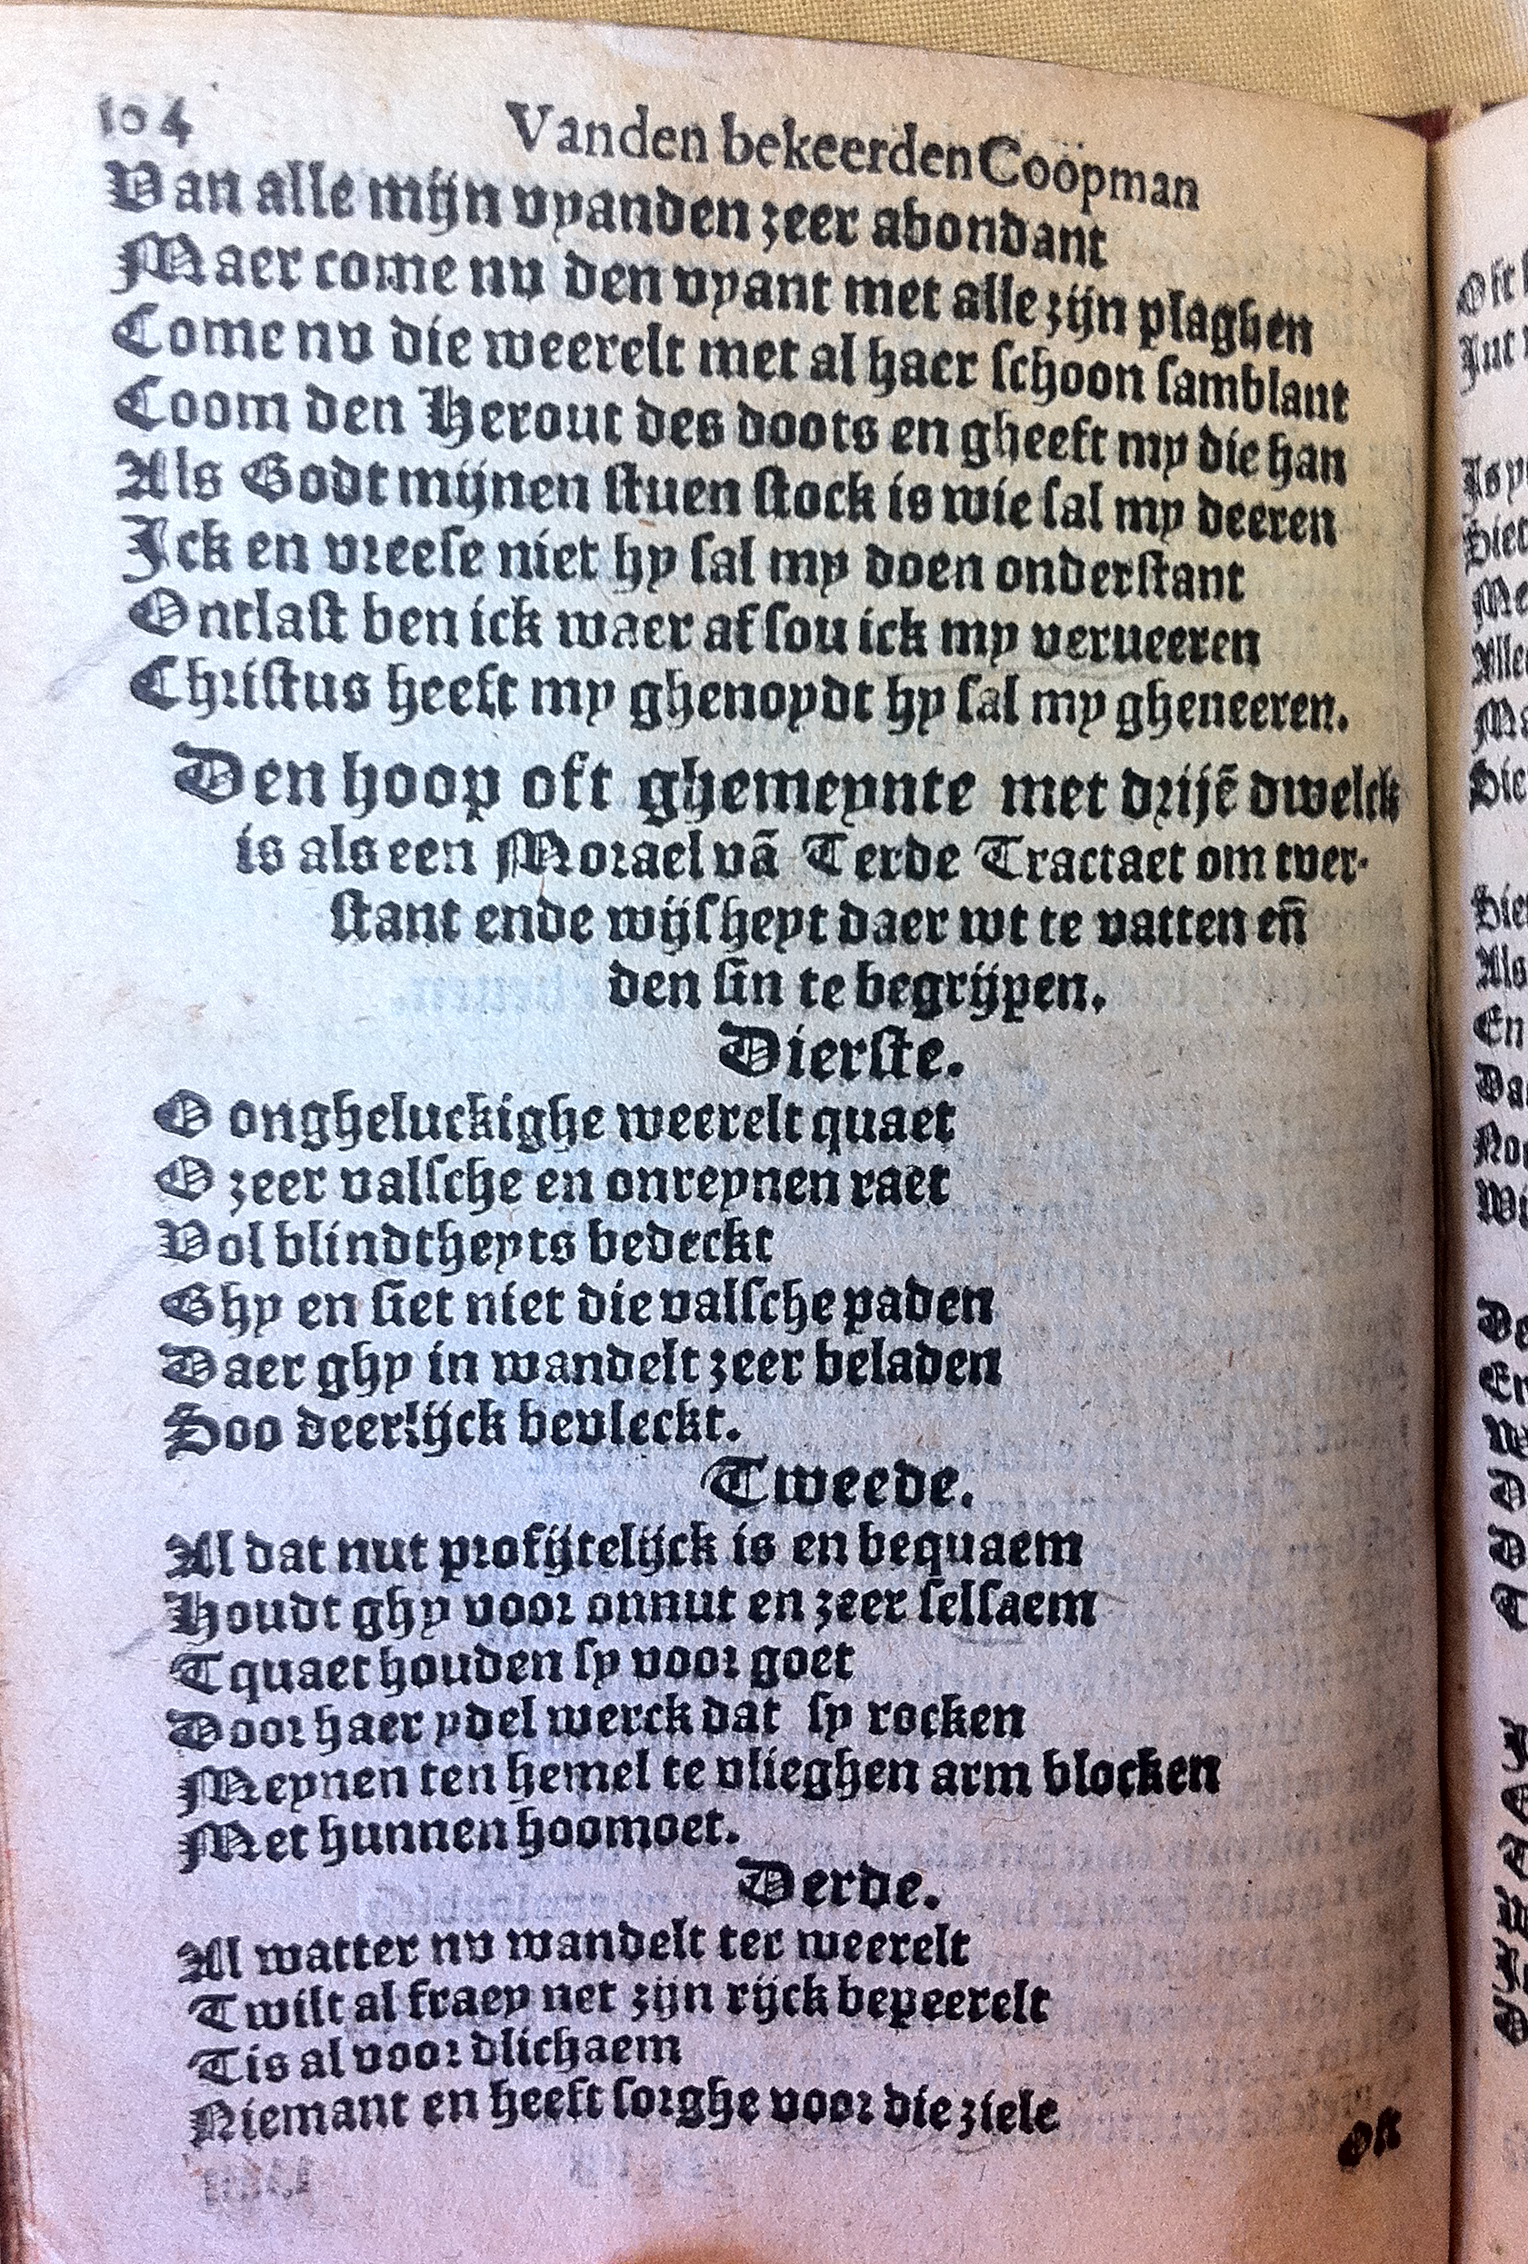 104
Vanden bekeerden Coopman
Van alle mijn vyanden zeer abondant
Maer come nu den vyant met alle zijn plaghen
Come nu die weerelt met al haer schoon samblant
Coom den Herout des doots en gheeft my die han
Als Godt mijnen stuen stock is wie sal my deeren
Ick en vreese niet hy sal my doen onderstant
Ontlast ben ick waer af sou ick my verueeren
Christus heeft my ghenoydt hy sal my gheneeren.
Den hoop oft ghemeynte met drijē dwelck
is als een Morael vā Terde Tractaet om tver-
stant ende wijsheyt daer wt te vatten en̄
den sin te begrijpen.
Dierste.
O ongheluckighe weerelt quaet
O zeer valsche en onreynen raet
Vol blindtheyts bedeckt
Ghy en siet niet die valsche paden
Daer ghy in wandelt zeer beladen
Soo deerlijck bevleckt.
Tweede.
Al dat nut profijtelijck is en bequaem
Houdt ghy voor onnut en zeer selsaem
Tquaet houden sy voor goet
Door haer ydel werck dat sy rocken
Meynen ten hemel te vlieghen arm blocken
Met hunnen hoomoet.
Derde.
Al watter nu wandelt ter weerelt
Twilt al fraey net zijn rijck bepeerelt
Tis al voor dlichaem
Niemant en heeft sorghe voor die ziele
Oft